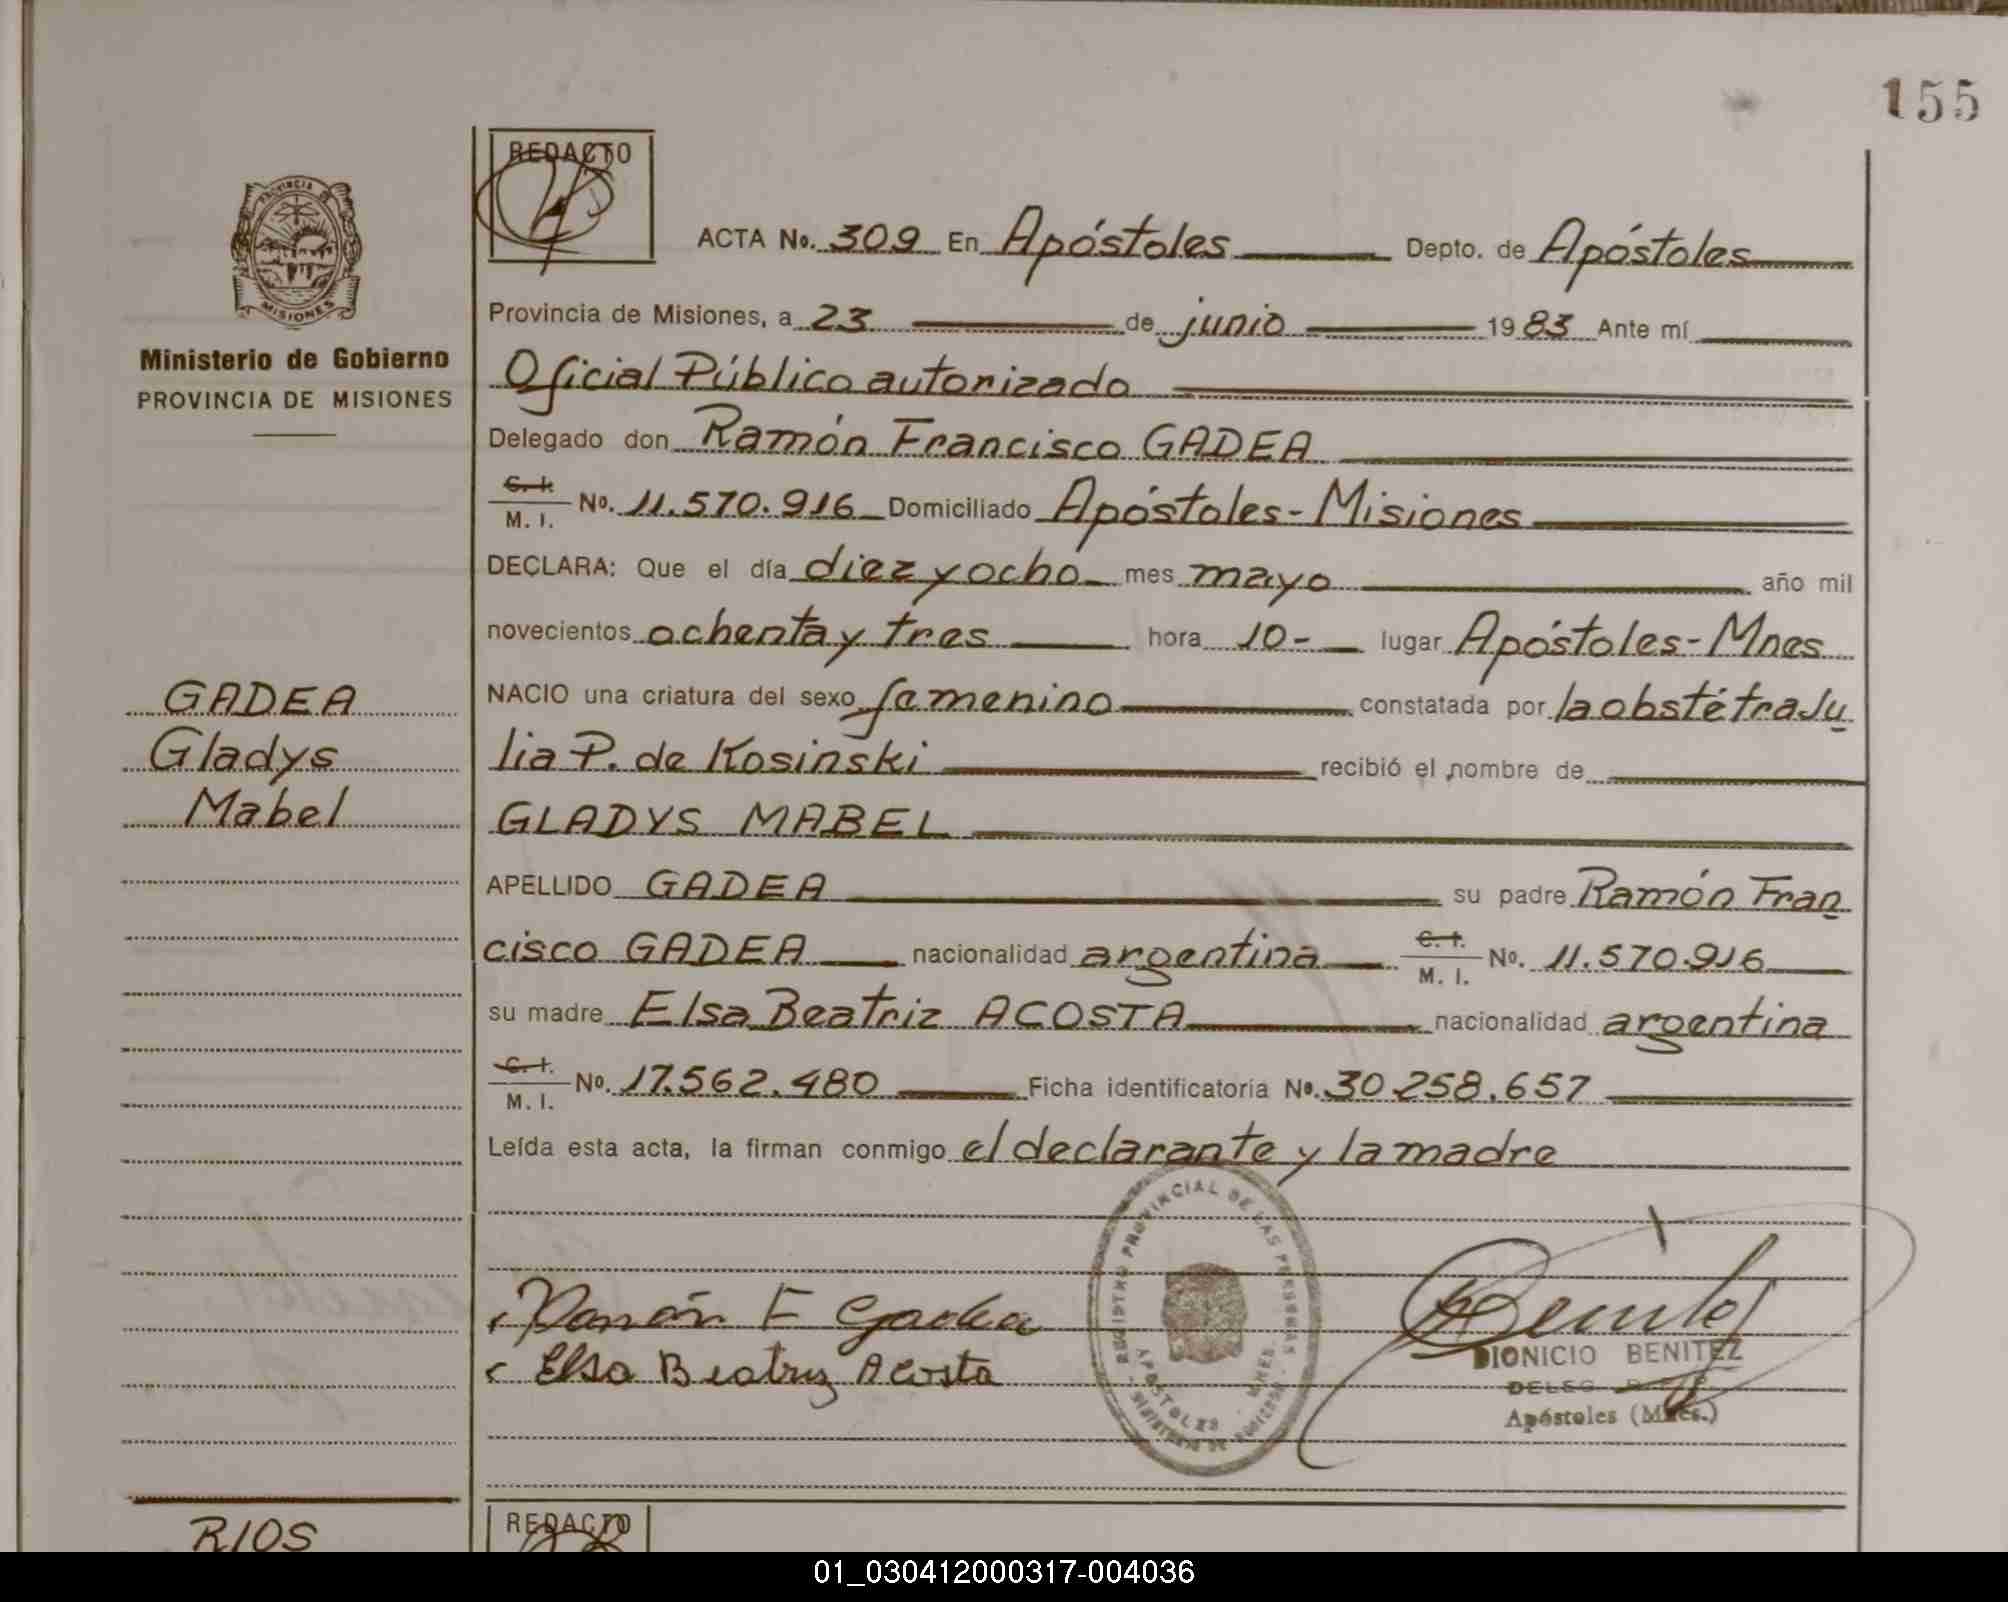 155
REDACTO
PROVINCIA DE
MISIONES
ACTA No. 309 En Apóstoles Depto. de Apóstoles
Provincia de Misiones, a 23 de junio 1983 Ante mí
Ministerio de Gobierno
PROVINCIA DE MISIONES
Oficial Público autorizado
Delegado don Ramón Francisco GADEA
C. I.
M. I. No. 11.570.916 Domiciliado Apóstoles - Misiones
DECLARA: Que el día diez y ocho mes mayo año mil
novecientos ochenta y tres hora 10- lugar Apóstoles - Mnes
GADEA
Gladys
Mabel
NACIO una criatura del sexo femenino constatada por la obstétra Ju
lia P. de Kosinski recibió el nombre de
GLADYS MABEL
APELLIDO GADEA su padre Ramón Fran
cisco GADEA nacionalidad argentina C. I. M. I. No. 11.570.916
su madre Elsa Beatriz ACOSTA nacionalidad argentina
C. I.
M. I. No. 17.562.480 Ficha identificatoria No. 30.258.657
Leída esta acta, la firman conmigo el declarante y la madre
REGISTRO PROVINCIAL DE LAS PERSONAS
APOSTOLES - MNES.
Ramón F Gadea
Elsa Beatriz Acosta
Benitez
DIONICIO BENITEZ
DELEG
Apóstoles (Mnes.)
RIOS
REDACTO
01_030412000317-004036